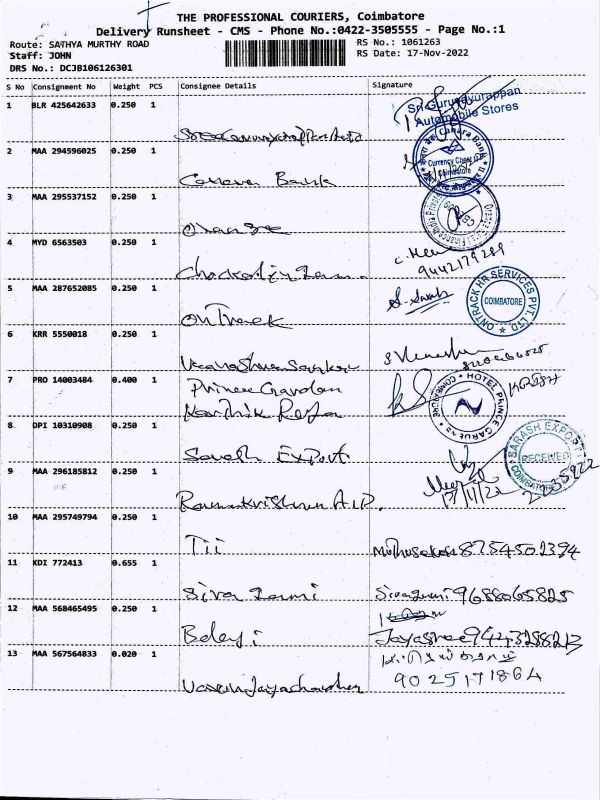 THE PROFESSIONAL COURIERS, Coimbatore
Delivery Runsheet - CMS - Phone No.:0422-3505555 - Page No.:1
Route: SATHYA MURTHY ROAD
RS No.: 1061263
Staff: JOHN
RS Date: 17-Nov-2022
DRS No.: DCJB106126301
S No Consignment No Weight PCS Consignee Details Signature
1 BLR 425642633 0.250 1
Sri Guruvayurappan
Automobile Stores
2 MAA 294596025 0.250 1
Canara Bank
Canara Bank
Currency Chest
Coimbatore
3 MAA 295537152 0.250 1
Orange
4 MYD 6563503 0.250 1
9442179289
5 MAA 287652085 0.250 1
OnTrack
ONTRACK HR SERVICES PVT. LTD
COIMBATORE
6 KRR 5550018 0.250 1
7 PRO 14003484 0.400 1
Prince Garden
Karthik Raja
HOTEL PRINCE GARDENS
COIMBATORE
8 DPI 10310908 0.250 1
Sarash Export
SARASH EXPORT
RECEIVED
COIMBATORE
2235922
9 MAA 296185812 0.250 1
17/11/22
10 MAA 295749794 0.250 1
Tii
8754501394
11 KDI 772413 0.655 1
Siva
9688065825
12 MAA 568465495 0.250 1
Balaji
Jayasree 9443288213
13 MAA 567564833 0.020 1
9025171864